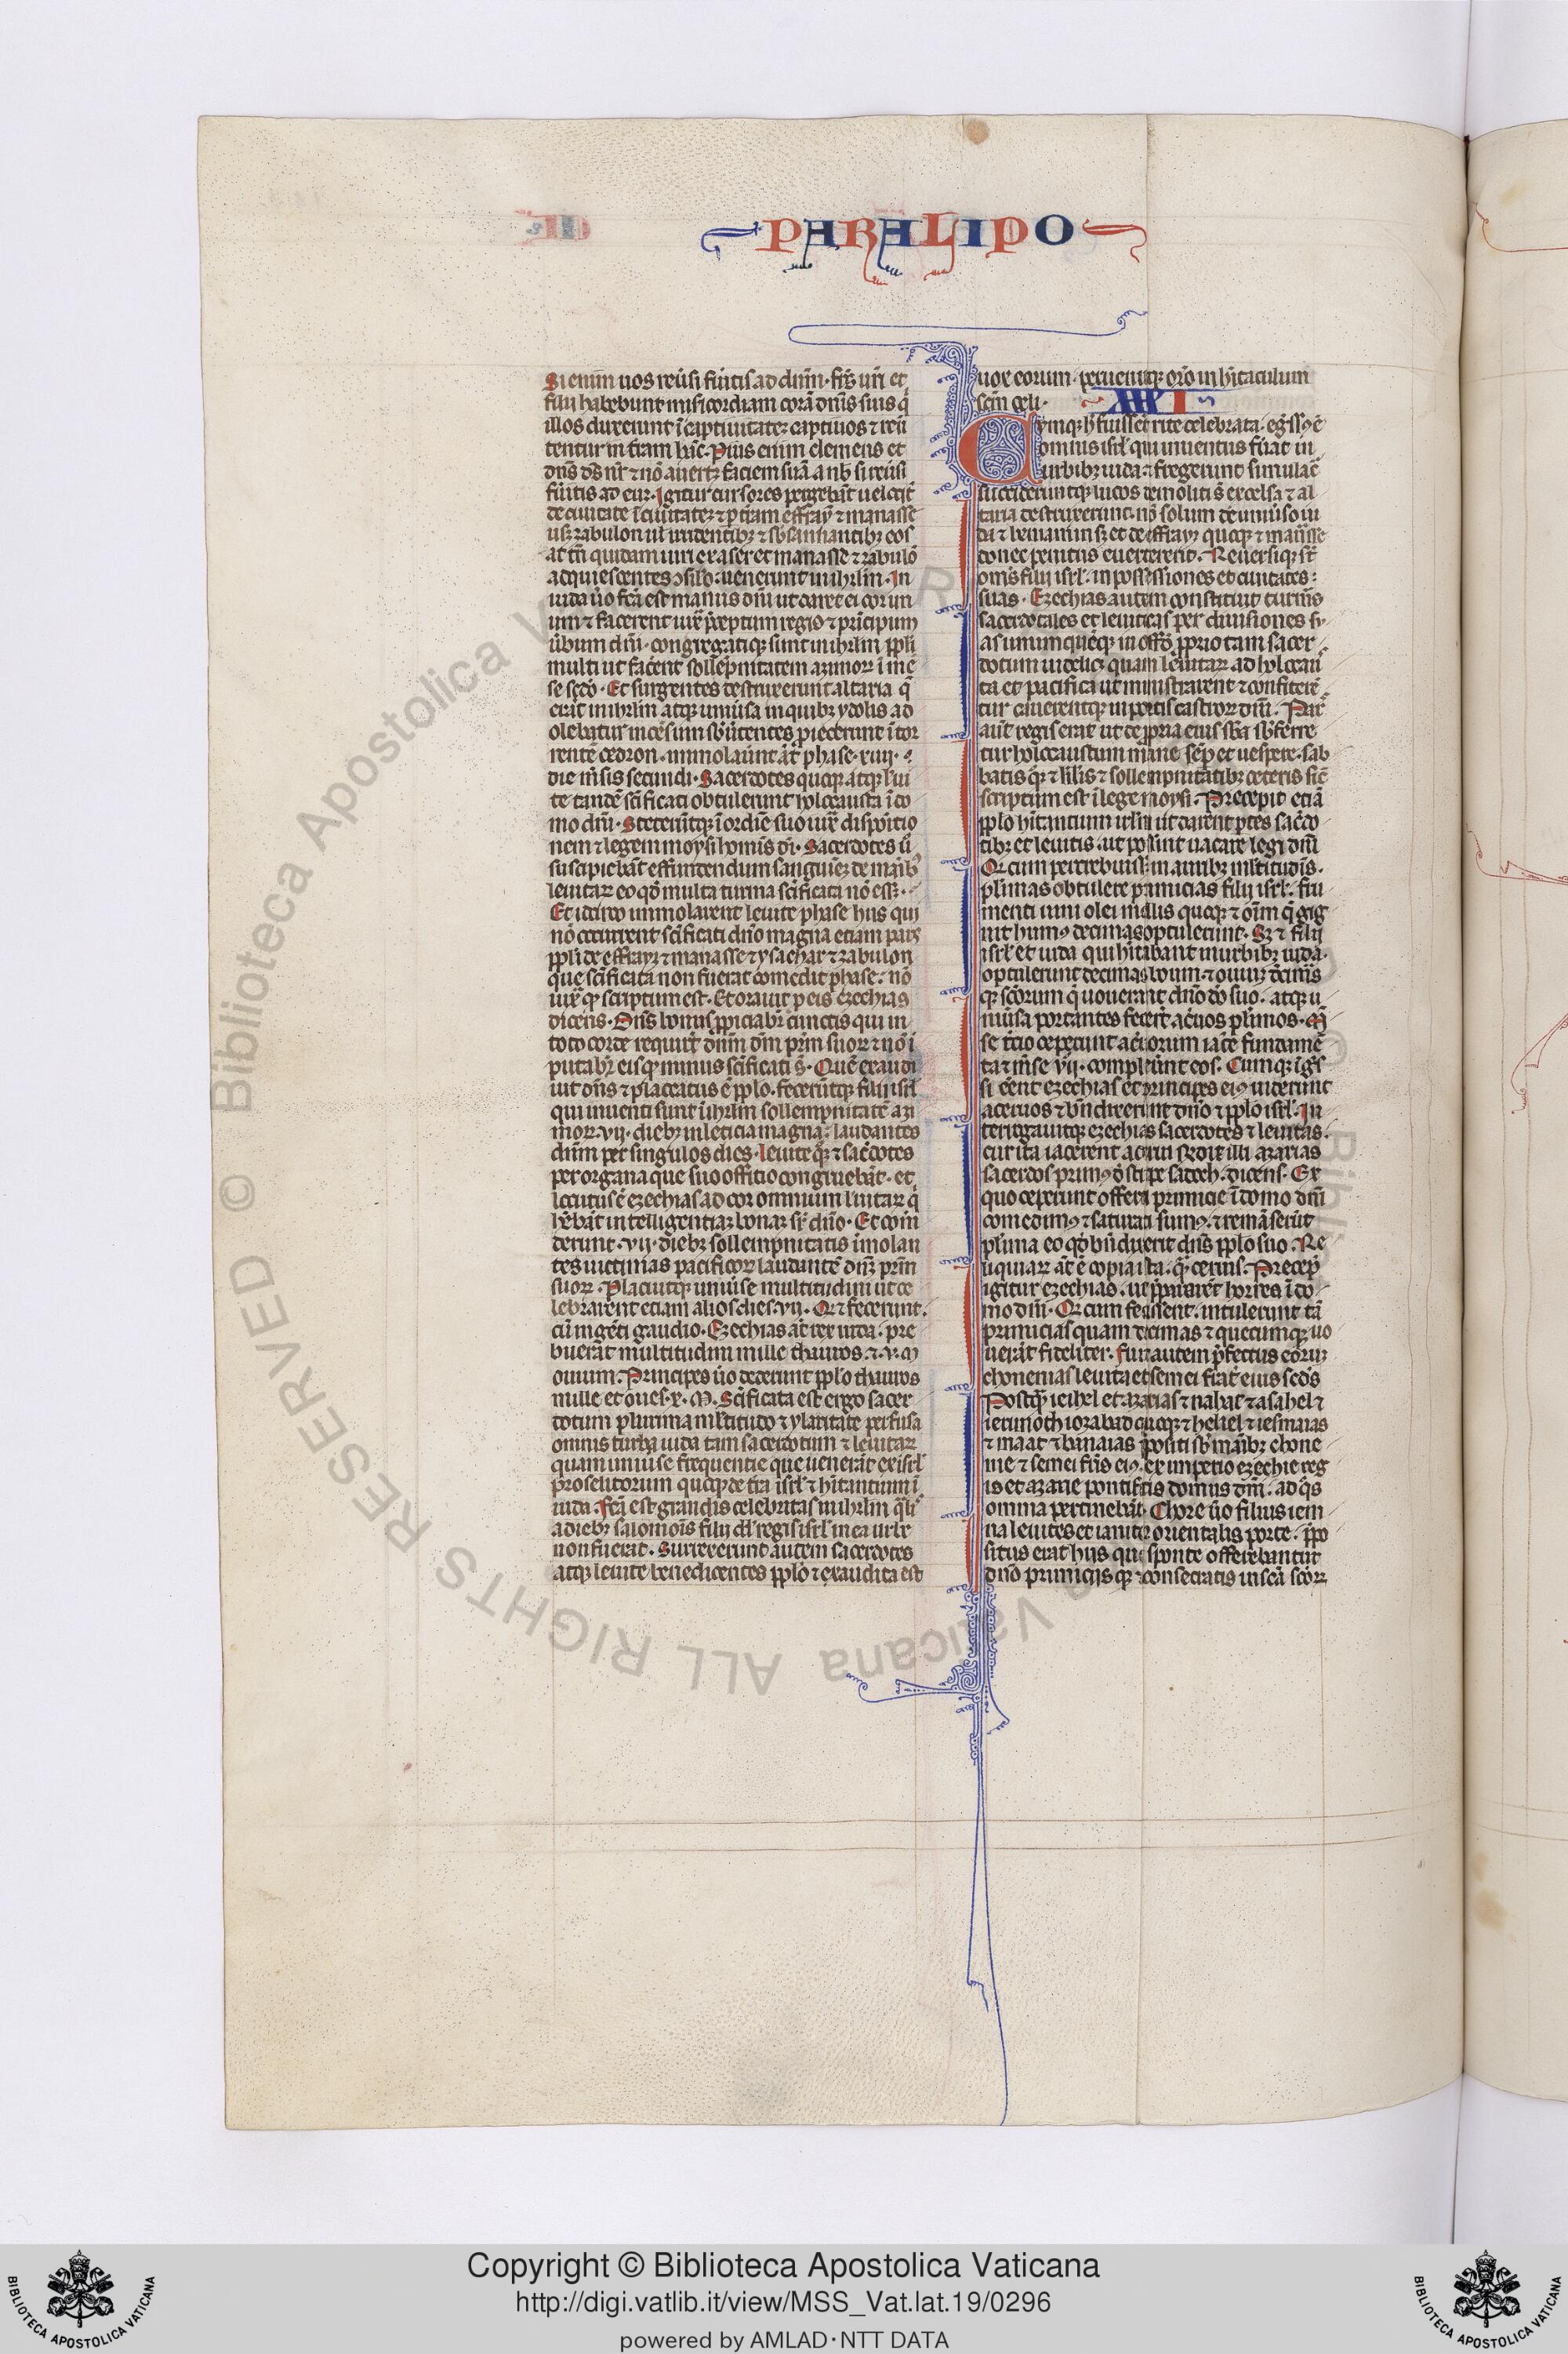 PARALIPO
Si enim uos reũsi fũitis ad dnm̃ · frs̃ uri et
filij habebunt misericordiam corã dnĩs suis q̃
illos duxerunt ĩ captiuitateꝫ captiuos ⁊ reũ
tentur in t̃ram hãc · Pius enim clemens et
dñs ds̃ nr̃ ⁊ nõ auertꝫ faciem suã a nb̃ si reũsi
fũitis ad eum · Igitur cursores pergebãt uelocit̃
de ciuitate ĩ ciuitateꝫ ⁊ p̃ t̃ram effraym ⁊ manasse
usqꝫ zabulon illis irridentibꝫ ⁊ sb̃sannantibꝫ eos
at tñ quidam uiri ex aser et manasse ⁊ zabulõ
adquiescentes ꝯsilio · uenerunt in ihrlm̃ · In
iuda ũo fcã est manus dñi ut daret ei cor un
um ⁊ facerent iux̃ p̃ceptum regis ⁊ principum
ũbum dñi · congregatiqꝫ sunt in ihrlm̃ ppli
multi ut fac̃ent sollẽpnitatem azimoꝝ ĩ mẽ
se scdõ · Et surgentes destruxerunt altaria q̃
erãt in ihrlm̃ atqꝫ uniũsa in quibꝫ ydolis ad
olebatur incẽsum sb̃ũtentes proiecerunt ĩ tor
rentẽ cedron · immolaũunt aũt phase · xiiij ·
die mñsis secundi · Sacerdotes quoqꝫ atqꝫ leui
te tandẽ scĩficati obtulerunt holocausta ĩ do
mo dñi · Steterũtqꝫ ĩ ordiẽ suo iux̃ dispõitio
nem ⁊ legem moysi homĩs dĩ · Sacerdotes ũo
suscipiebãt effundendum sanguineꝫ de manibꝫ
leuitaꝝ eo qd̃ multa turma scĩficata nõ esset ·
Et idcirco immolarent leuite phase hijs qui
nõ occurrerent scĩficari dño magna etiam pars
ppli de effraym ⁊ manasse ⁊ ysachar ⁊ zabulon
que scĩficata non fuerat comedit phase · nõ
iux̃ qd̃ scriptum est · Et orauit p eis ezechias
dicens · Dñs bonus ppiciabit̃ cunctis qui in
toto corde requirũt dñm dm̃ prm̃ suoꝝ ⁊ nõ ĩ
putabit̃ eis qd̃ minus scĩficati sũt · Quẽ exaudi
uit dñs ⁊ placatus ẽ pplo · fecerũtqꝫ filij isrl̃
qui inuenti sunt ĩ ihrlm̃ sollempnitatẽ azi
moꝝ · vij · diebꝫ in leticia magna · laudantes
dñm per singulos dies · leuite qꝫ ⁊ sac̃dotes
per organa que suo offitio congruebãt · et
locutus ẽ ezechias ad cor omnium leuitaꝝ q̃
hẽbãt intelligentiaꝫ bonaꝫ sr̃ dño · Et com̃
derunt · vij · diebꝫ sollempnitatis ĩmolan
tes uictimas pacificoꝝ laudantẽ dm̃ prm̃
suoꝝ · Placuitqꝫ uniũse multitudini ut ce
lebrarent etiam alios dies · vij · Qd̃ ⁊ fecerunt ·
cũ ingẽti gaudio · Ezechias aũt rex iuda · pre
buerat multitudini mille thauros · ⁊ · v · m̃
ouium · Principes ũo dederunt pplo thauros
mille et oues · x · M · Scĩficata est ergo sacer
dotum plurima multitudo ⁊ ylaritate perfusa
omnis turba iuda tam sacerdotum ⁊ leuitaꝝ
quam uniũse frequentie que uenerat ex isrl̃
proselitorum quoqꝫ de t̃ra isrl̃ ⁊ hĩtantium ĩ
iuda · Fcã est grandis celebritas in ihrlm̃ qual̃
a diebꝫ salomonis filij dd̃ regis isrl̃ in ea urbe
non fuerat · Surrexerunt autem sacerdotes
atqꝫ leuite benedicentes pplo ⁊ exaudita est
uox eorum · peruenitqꝫ orõ in hĩtaculum
scm̃ celi · XXXI
Cumqꝫ h̃ fuissẽt rite celebrata · egss̃us ẽ
omnis isrl̃ qui inuentus fũat in
urbibꝫ iuda ⁊ fregerunt simulacr̃
succideruntqꝫ lucos demoliti s̃t excelsa ⁊ al
taria destruxerunt · nõ solum de uniũso iu
da ⁊ beniamin sꝫ et de effraym quoqꝫ ⁊ manasse
donec penitus euerterent · Reuersiqꝫ st̃
oms̃ filij isrl̃ · in possessiones et ciuitates
suas · Ezechias autem constituit turmas
sacerdotales et leuiticas per diuisiones su
as unumquẽqꝫ in offitio pprio tam sacer
dotum uidelicꝫ quam leuitaꝝ ad holocau
sta et pacifica ut ministrarent ⁊ confiterẽ
tur canerentqꝫ in portis castroꝝ dñi · Pars
aũt regis erat ut de ppria eius sb̃a sb̃ferre
tur holocaustum mane semp̃ et uespere · sab
batis qꝫ ⁊ kl̃is ⁊ sollempnitatibꝫ ceteris sic̃
scriptum est ĩ lege moysi · Precepit etiã
pplo hĩtantium irlm̃ ut darent partes sac̃do
tibꝫ et leuitis · ut possint uacare legi dñi
Qd̃ cum percrebuisset in auribꝫ multitudinis ·
plimas obtulere primicias filij isrl̃ · fru
menti uini olei mellis quoqꝫ ⁊ oĩm q̃ gig
nit humus decimas optulerunt · Sꝫ ⁊ filij
isrl̃ et iuda qui hĩtabant in urbibꝫ iuda ·
optulerunt decimas boum ⁊ ouium ⁊ decimas
qꝫ scõrum q̃ uouerant dño dõ suo · atqꝫ u
niũsa portantes fecerũt aceruos plimos · Mẽ
se t̃cio ceperunt aceruorum iacẽ fundamẽ
ta ⁊ mẽse vij · compleuerunt eos · Cumqꝫ ĩgs̃
si eẽnt ezechias et principes eius uiderunt
aceruos ⁊ bñdixerunt dño ⁊ pplo isrl̃ · In
terrogauitqꝫ ezechias sacerdotes ⁊ leuitas ·
cur ita iacerent acerui · respondit illi azarias
sacerdos primus de stirpe sadoch · dicens · Ex
quo ceperunt offerri primicie ĩ domo dñi
comedimus ⁊ saturati sumus · ⁊ remãserũt
plima eo qd̃ bñdixerit dñs pplo suo · Re
liquiaꝝ aũt ẽ copia ista · q̃ cernis · Precep̃
igitur ezechias · ut p̃pararẽt horrea ĩ do
mo dñi · Qd̃ cum fecissent · intulerunt tã
primicias quam decimas ⁊ quecumqꝫ uo
uerãt fideliter · Fuit autem p̃fectus eoruꝫ
chonenias leuita et semei frat̃ eius scds̃
Postqꝫ ieihel et azarias ⁊ nahat ⁊ asahel ⁊
ierimoth iozabad quoqꝫ ⁊ heliel ⁊ iesmaias
⁊ maat ⁊ banaias p̃positi sb̃ manibꝫ chone
nie ⁊ semei fris̃ eius ex imperio ezechie reg
is et azarie pontificis domus dñi · ad q̃s
omnia pertinebãt · Chore ũo filius iem
na leuites et ianitor orientalis porte · p̃po
situs erat hijs qui sponte offerebantur
dño primicijs qꝫ ⁊ consecratis in scã scõꝝ
Copyright © Biblioteca Apostolica Vaticana
http://digi.vatlib.it/view/MSS_Vat.lat.19/0296
powered by AMLAD·NTT DATA
BIBLIOTECA APOSTOLICA VATICANA
BIBLIOTECA APOSTOLICA VATICANA